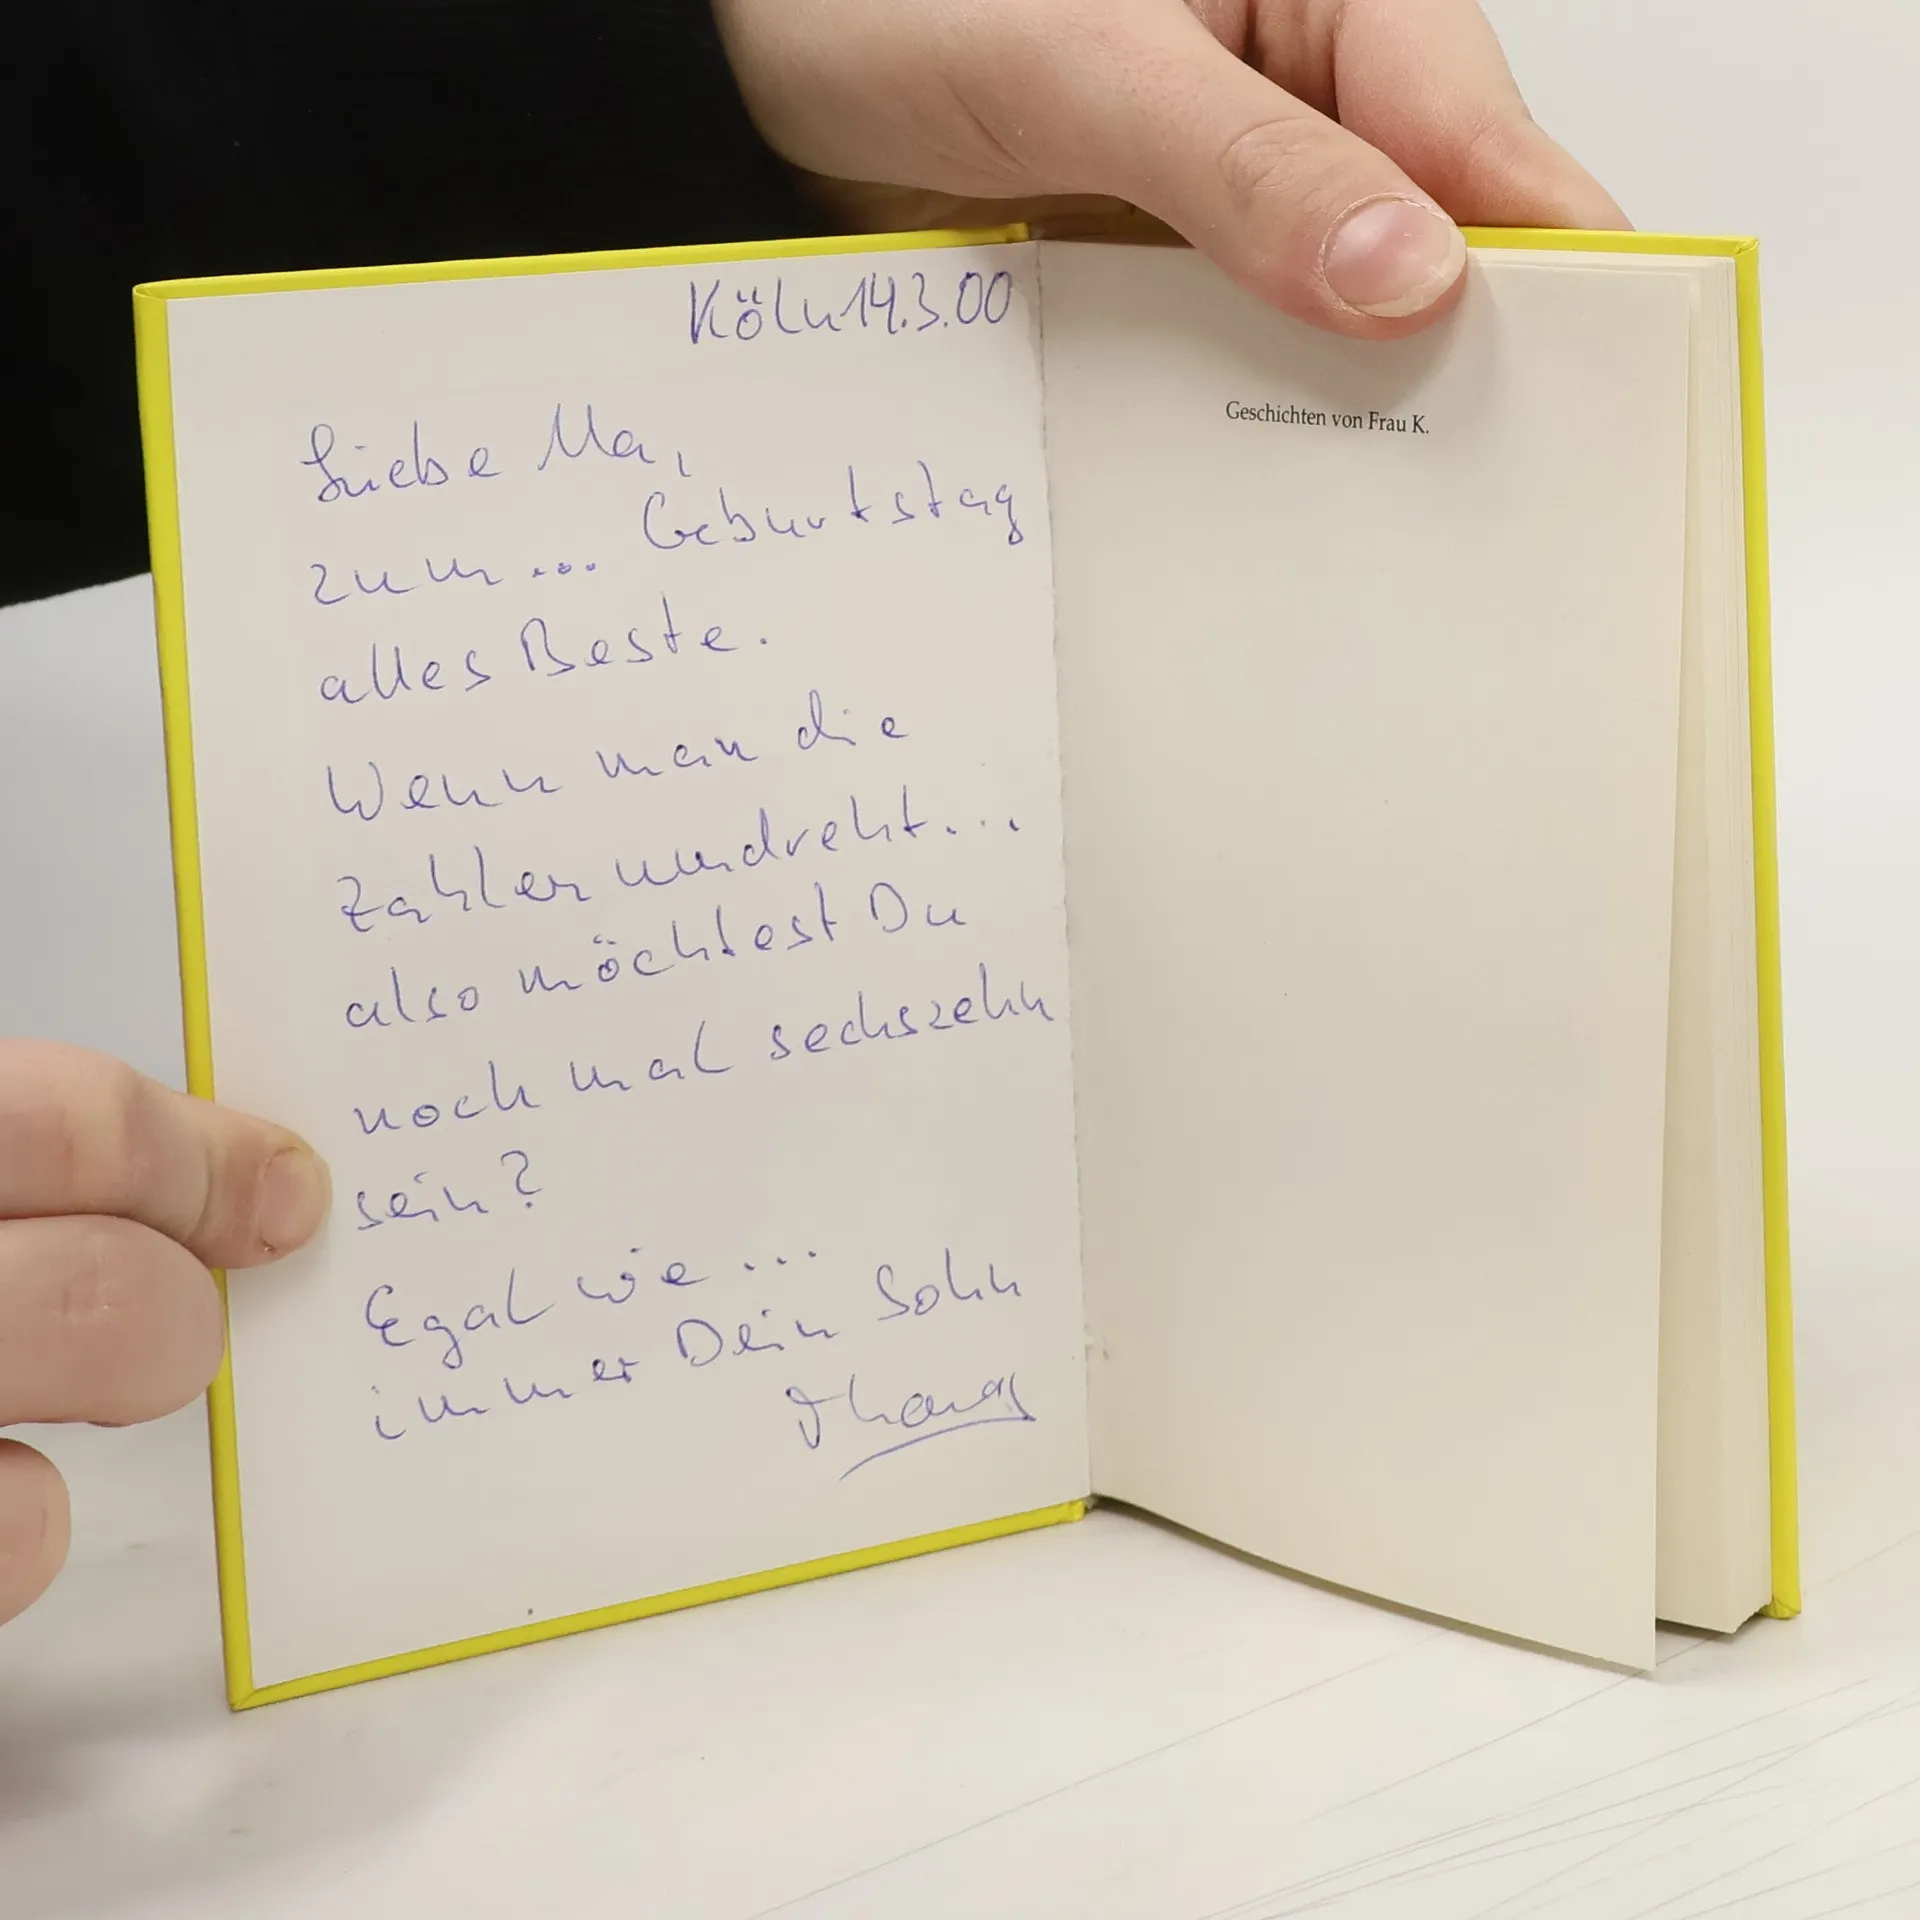 Köln 14.3.00
Liebe Ma,
zum ... Geburtstag
alles Beste.
Wenn man die
Zahlen umdreht...
also möchtest Du
noch mal sechszehn
sein?
Egal wie ...
immer Dein Sohn
Geschichten von Frau K.